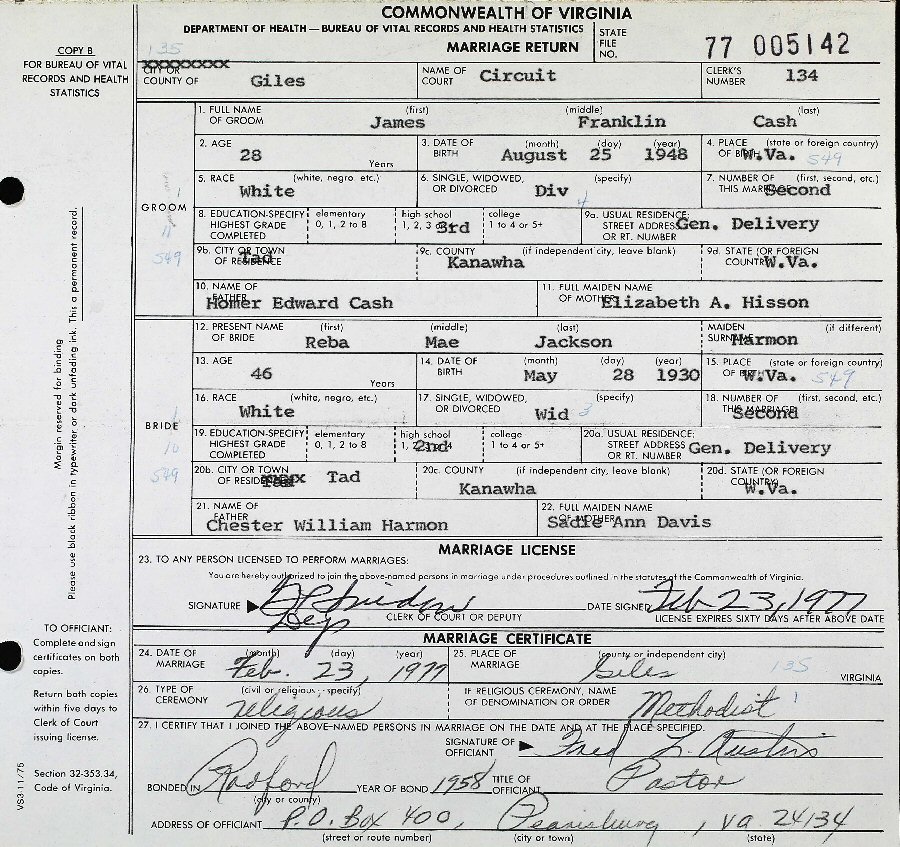 COMMONWEALTH OF VIRGINIA
DEPARTMENT OF HEALTH — BUREAU OF VITAL RECORDS AND HEALTH STATISTICS
MARRIAGE RETURN
STATE FILE NO. 77 005142
COPY B
FOR BUREAU OF VITAL
RECORDS AND HEALTH
STATISTICS
135
CITY OR
COUNTY OF Giles
NAME OF COURT Circuit
CLERK'S NUMBER 134
GROOM
1. FULL NAME OF GROOM (first) James (middle) Franklin (last) Cash
2. AGE 28 Years
3. DATE OF BIRTH (month) August (day) 25 (year) 1948
4. PLACE OF BIRTH (state or foreign country) W.Va. 549
5. RACE (white, negro, etc.) White
6. SINGLE, WIDOWED, OR DIVORCED (specify) Div 4
7. NUMBER OF THIS MARRIAGE (first, second, etc.) Second
8. EDUCATION-SPECIFY HIGHEST GRADE COMPLETED elementary 0, 1, 2 to 8 high school 1, 2, 3 3rd college 1 to 4 or 5+
9a. USUAL RESIDENCE: STREET ADDRESS OR RT. NUMBER Gen. Delivery
549
9b. CITY OR TOWN OF RESIDENCE Tad
9c. COUNTY (if independent city, leave blank) Kanawha
9d. STATE (OR FOREIGN COUNTRY) W.Va.
10. NAME OF FATHER Homer Edward Cash
11. FULL MAIDEN NAME OF MOTHER Elizabeth A. Hisson
BRIDE
12. PRESENT NAME OF BRIDE (first) Reba (middle) Mae (last) Jackson
MAIDEN SURNAME (if different) Harmon
13. AGE 46 Years
14. DATE OF BIRTH (month) May (day) 28 (year) 1930
15. PLACE OF BIRTH (state or foreign country) W.Va. 549
16. RACE (white, negro, etc.) White
17. SINGLE, WIDOWED, OR DIVORCED (specify) Wid 3
18. NUMBER OF THIS MARRIAGE (first, second, etc.) Second
19. EDUCATION-SPECIFY HIGHEST GRADE COMPLETED elementary 0, 1, 2 to 8 high school 1, 2nd 4 college 1 to 4 or 5+
20a. USUAL RESIDENCE: STREET ADDRESS OR RT. NUMBER Gen. Delivery
10
549
20b. CITY OR TOWN OF RESIDENCE Tad
20c. COUNTY (if independent city, leave blank) Kanawha
20d. STATE (OR FOREIGN COUNTRY) W.Va.
21. NAME OF FATHER Chester William Harmon
22. FULL MAIDEN NAME OF MOTHER Sadie Ann Davis
Margin reserved for binding
Please use black ribbon in typewriter or dark unfading ink. This is a permanent record.
MARRIAGE LICENSE
23. TO ANY PERSON LICENSED TO PERFORM MARRIAGES:
You are hereby authorized to join the above-named persons in marriage under procedures outlined in the statutes of the Commonwealth of Virginia.
SIGNATURE
CLERK OF COURT OR DEPUTY
DATE SIGNED Feb 23, 1977
LICENSE EXPIRES SIXTY DAYS AFTER ABOVE DATE
MARRIAGE CERTIFICATE
TO OFFICIAL:
Complete and sign
certificates on both
copies.
Return both copies
within five days to
Clerk of Court
issuing license.
Section 32-353.34,
Code of Virginia.
VS3-11/75
24. DATE OF MARRIAGE (month) (day) (year) Feb. 23, 1977
25. PLACE OF MARRIAGE (county or independent city) Giles 135 VIRGINIA
26. TYPE OF CEREMONY (civil or religious; specify) religious
IF RELIGIOUS CEREMONY, NAME OF DENOMINATION OR ORDER Methodist 1
27. I CERTIFY THAT I JOINED THE ABOVE-NAMED PERSONS IN MARRIAGE ON THE DATE AND AT THE PLACE SPECIFIED.
SIGNATURE OF OFFICIANT Fred L. Austin
BONDED IN Radford (city or county) YEAR OF BOND 1958 TITLE OF OFFICIANT Pastor
ADDRESS OF OFFICIANT P.O. Box 400, Pearisburg, Va. 24134
(street or route number) (city or town) (state)